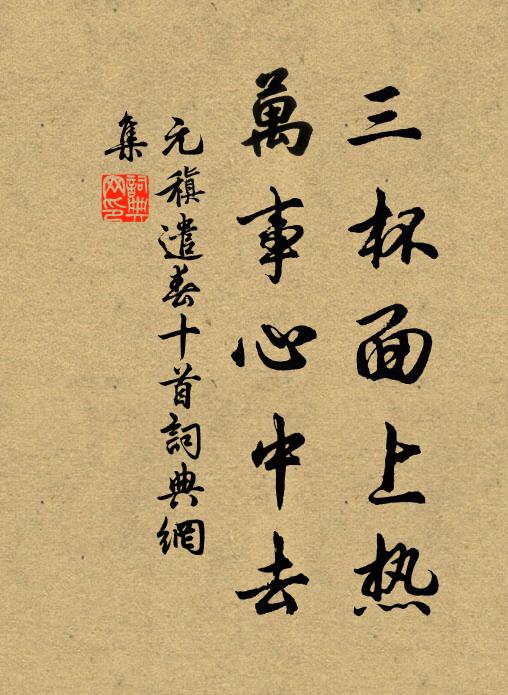 三杯面上热
萬事心中去
元稹遣春十首詞典網
集
詞典
网印